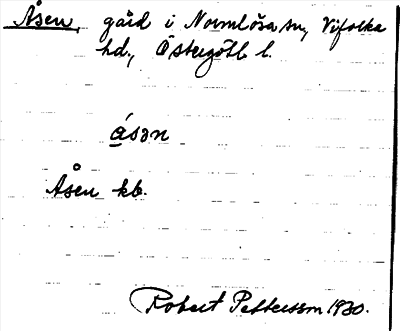 Åsen, gård i Normlösa sn, Vifolka
hd., Östergötl l.
åsən
Åsen kb.
Robert Pettersson 1930.